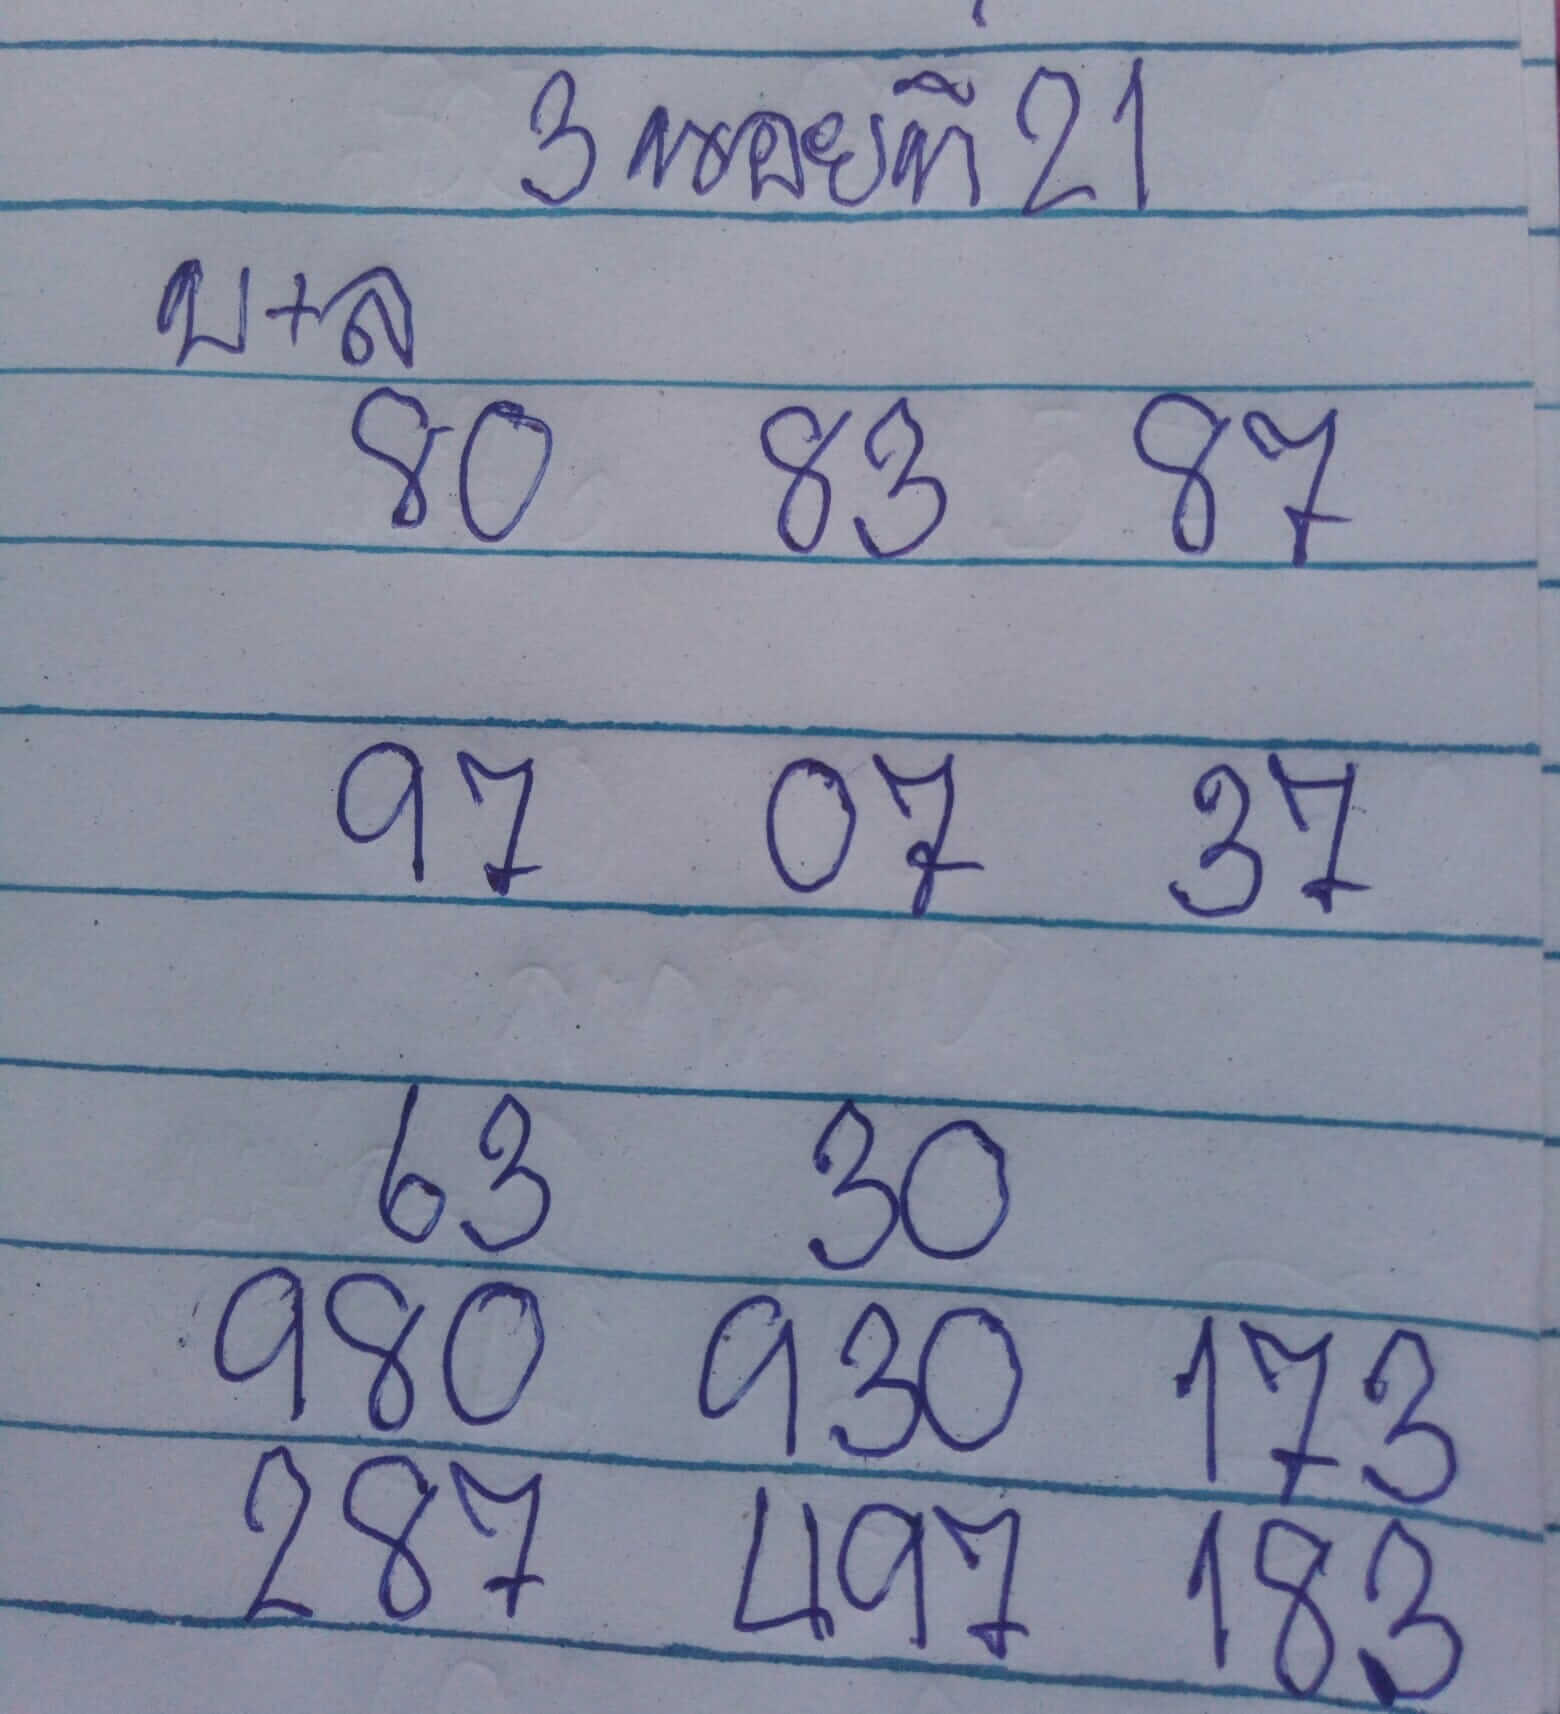 3 หอยที่ 21
บ+ล
80 83 87
97 07 37
63 30
980 930 173
287 497 183